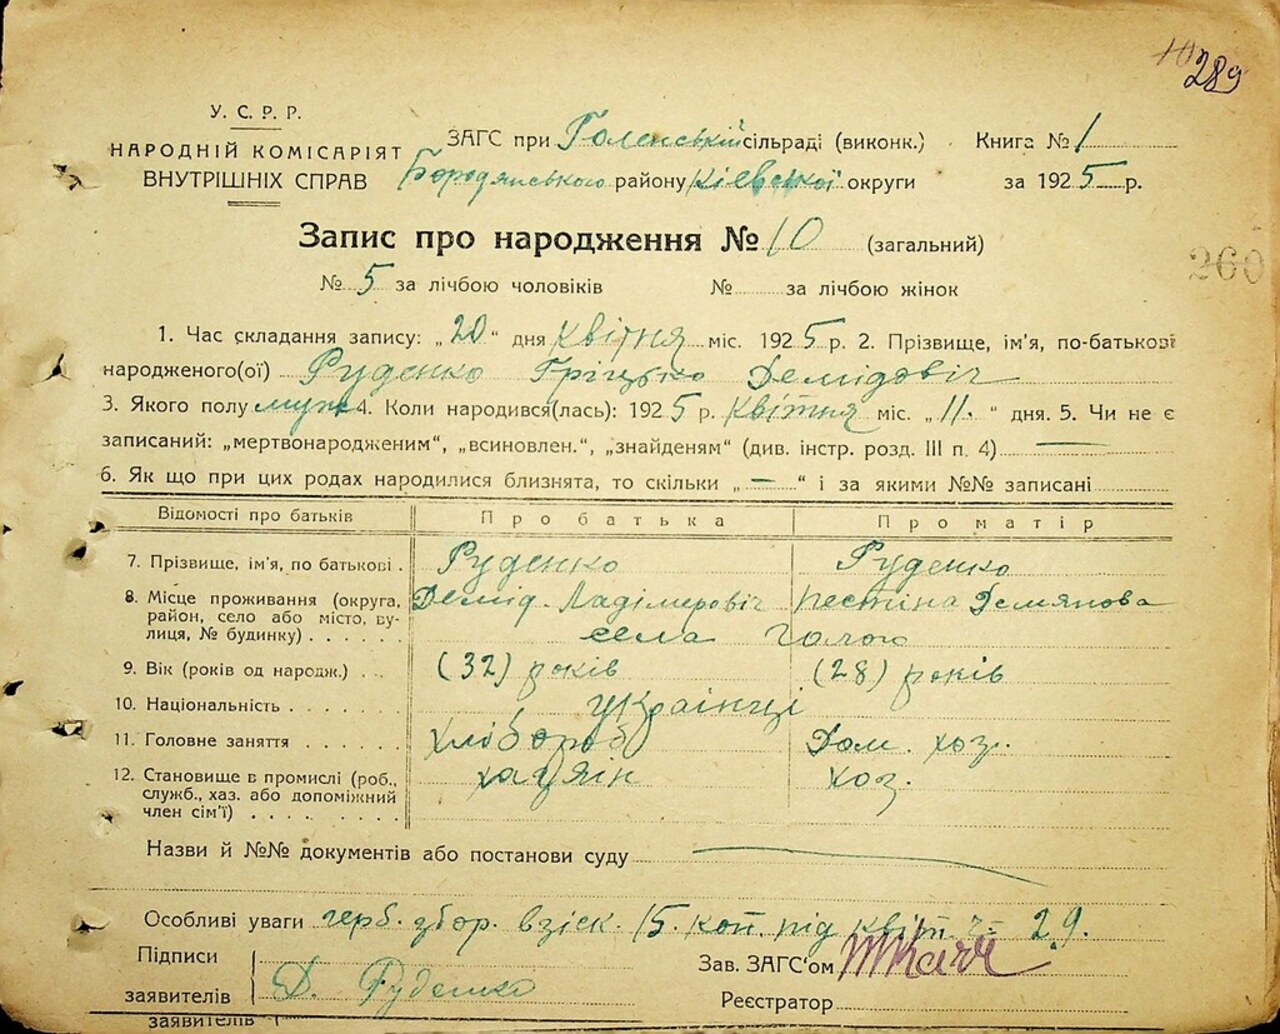 289
У. С. Р. Р.
НАРОДНІЙ КОМІСАРІЯТ
ВНУТРІШНІХ СПРАВ
ЗАГС при Голенській сільраді (виконк.) Книга № 1
Бородянського району Київської округи за 1925 р.
Запис про народження № 10 (загальний)
260
№ 5 за лічбою чоловіків № за лічбою жінок
1. Час складання запису: „20“ дня Квітня міс. 1925 р. 2. Прізвище, ім'я, по-батькові
народженого(ої) Руденко Гріцько Демідовіч
3. Якого полу муж 4. Коли народився(лась): 1925 р. Квітня міс. „11.“ дня. 5. Чи не є
записаний: „мертвонародженим“, „всиновлен.“, „знайденям“ (див. інстр. розд. III п. 4) —
6. Як що при цих родах народилися близнята, то скільки „—“ і за якими №№ записані
Відомості про батьків Про батька Про матір
7. Прізвище, ім'я, по батькові . Руденко Руденко
Демід Ладімеровіч Демянова
8. Місце проживання (округа,
район, село або місто, ву-
лиця, № будинку) . . . . . . села
9. Вік (років од народж.) . . . (32) років (28) років
10. Національність . . . . . . . українці
11. Головне заняття . . . . . . хлібороб Дом. хоз.
12. Становище в промислі (роб.,
служб., хаз. або допоміжний
член сім'ї) . . . . . . . . . хазяін хоз.
Назви й №№ документів або постанови суду
Особливі уваги герб. збор. взіск. 15. коп. під квіт. ч 29.
Підписи
заявителів Д. Руденко
Зав. ЗАГС'ом
Реєстратор
заявителів